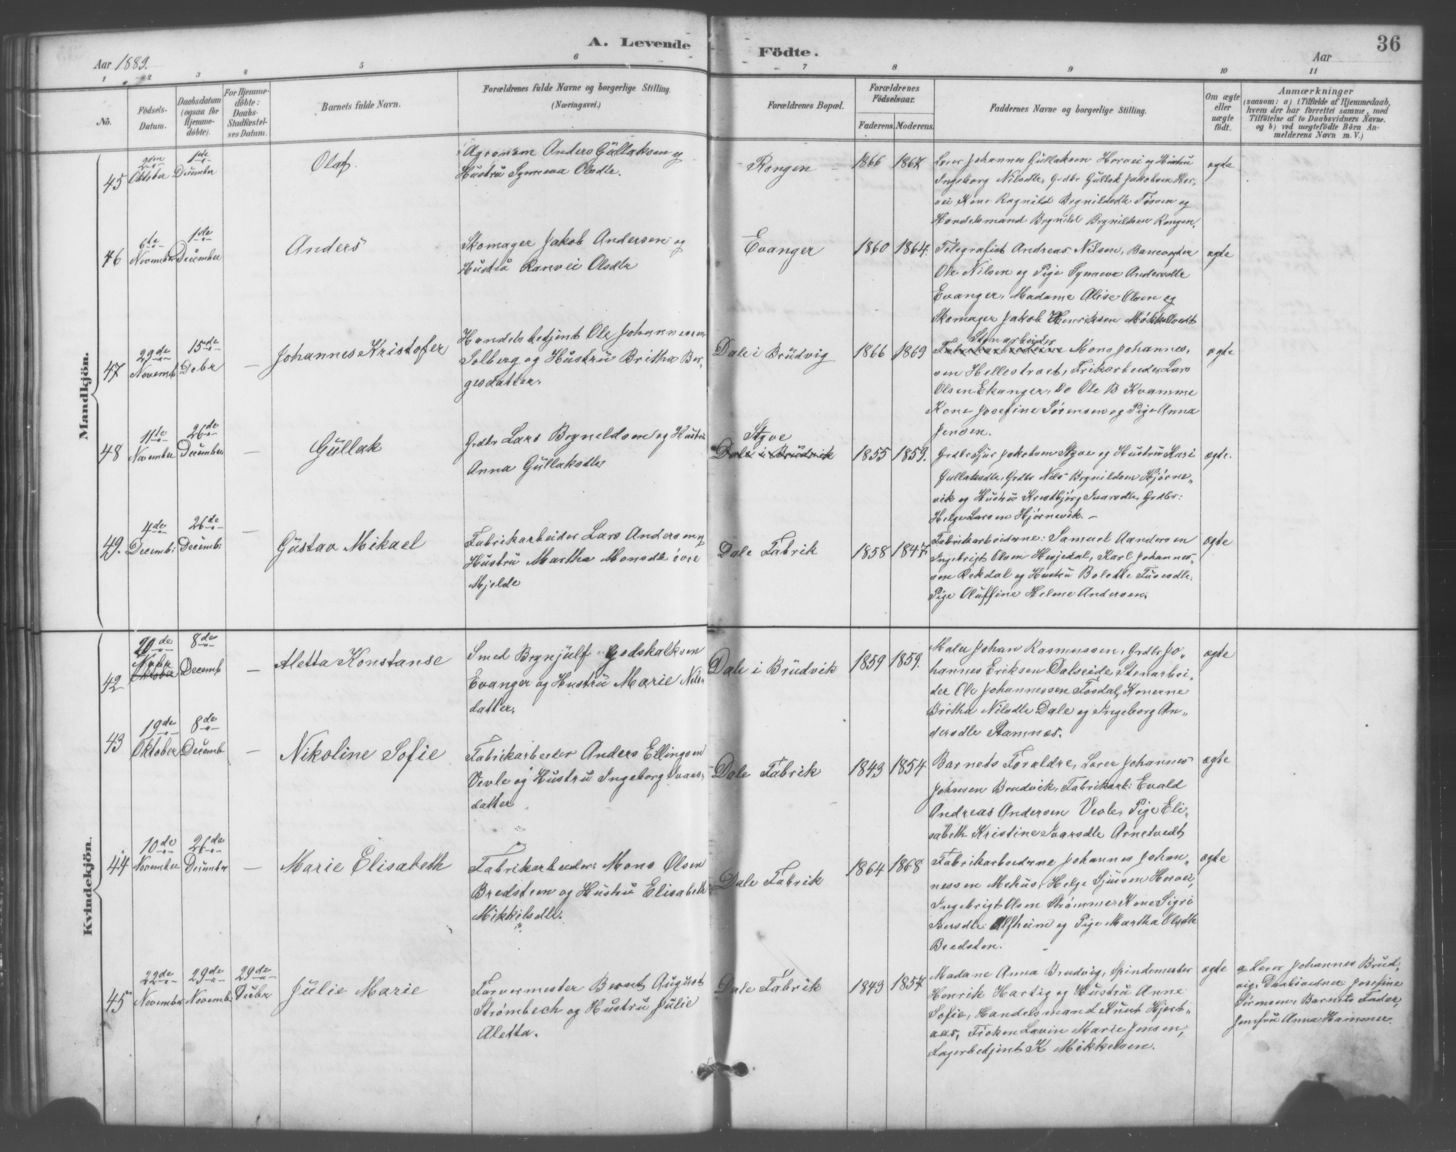 A. Levende Födte.
36
Aar 1889.
Aar
1 2 3 4 5 6 7 8 9 10 11
No.
Födsels-
Datum.
Daabsdatum
(ogsaa for
Hjemme-
döbte).
For Hjemme-
döbte:
Daabs-
Stadfæstel-
ses Datum.
Barnets fulde Navn.
Forældrenes fulde Navne og borgerlige Stilling.
(Næringsvei.)
Forældrenes Bopæl.
Forældrenes
Födselsaar.
Faderens. Moderens.
Faddernes Navne og borgerlige Stilling.
Om ægte
eller
uægte
födt.
Anmærkninger
(saasom: a) i Tilfælde af Hjemmedaab,
hvem der har forrettet samme, med
Tilføielse af to Daabsvidners Navne.
og b) ved uægtefödte Börn An-
melderens Navn m. V.)
Mandkjön.
45
Oktober
1de
December
Olaf
Agronom Anders Gullaksen og
Hustru Synneva Olsdtr.
Rongen
1866 1867
Lærer Johannes Gullaksen Horvei og Hustru
Ingeborg Nilsdtr, Grdbr Gullak Jakobsen Hor-
vei, Kone Ragnild Brynildsdtr Fosson og
Handelsmand Brynild Brynildsen Rongen.
ægte
46
6te
November
1de
December
Anders
Skomager Jakob Andersen og
Hustru Ranvei Olsdtr
Evanger
1860 1864
Telegrafist Andreas Nilsen, Banevogter
Ole Nilsen og Pige Synneve Andersdtr
Evanger, Madame Alise Olsen og
Skomager Jakob Henriksen Mökkelvedt
ægte
47
29de
Novemb
15de
Debr
—
Johannes Kristofer
Handelsbetjent Ole Johannesen
Solberg og Hustru Britha Bør-
gesdatter.
Dale i Brüdvig
1866 1869
Stenarbeider
Mons Johannes-
sen Hellestrael, Frikarbeider Lars
Olsen Ekanger, Do Ole B Kvamme
Kone Josefine Sørensen og Pige Anna
Jensen.
ægte
48
11te
November
26de
December
—
Gullak
Grdbr Lars Brynildsen og Hustru
Anna Gullaksdtr
Styve
Dale i Brudvik
1855 1859.
Grdbr Sjur Jakobsen Styve og Hustru Kari
Gullaksdtr, Grdbr Nils Brynildsen Hjørne-
vik og Hustru Kristbjørg Ivarsdtr, Grdbr:
Helge Larsen Hjørnevik. —
ægte.
49.
4de
Decemb:
26de
Decemb:
—
Gustav Mikael
Fabrikarbeider Lars Andersen og
Hustru Martha Monsdtr övre
Mjelde
Dale Fabrik
1858 1847
Fabrikarbeiderne: Samuel Aandersen
Ingebrigt Olsen Hesjedal, Karl Johannes-
sen Rekdal og Hustru Bolette
Pige Oluffine Helene Andersen.
ægte
Kvindekjön.
42
20de
Novbr
Oktober
8de
Decemb
—
Aletta Konstanse
Smed Brynjulf Godskalksen
Evanger og Hustru Marie Nils-
datter.
Dale i Brüdvik
1859 1859.
Maler Johan Rasmussen, Grdbr Jo-
hannes Eriksen Dalseide, Stenarbei-
der Ole Johannessen Fosdal, Konerne
Britha Nilsdtr Dale og Ingeborg An-
dersdtr Stamnes.
ægte
43
19de
Oktober
8de
Decemb
—
Nikoline Sofie
Fabrikarbeider Anders Ellingsen
Vevle og Hustru Ingeborg Ivars-
datter
Dale Fabrik
1843 1854
Barnets Forældre, Lærer Johannes
Johnsen Brudvik, Fabrikarb: Evald
Andreas Andersen Vevle, Pige Eli-
sabeth Kristine Ivarsdtr Arnetvedt
ægte
44
10de
November
26de
December
—
Marie Elisabeth
Fabrikarbeider Mons Olsen
Bredsten og Hustru Elisabeth
Mikkelsdtr.
Dale Fabrik
1864 1868
Fabrikarbeiderne Johannes Johan-
nessen Mehus, Helge Sjursen Horvei,
Ingebrigt Olsen Strömmer, Kone Sigri
Iversdtr Alfheim og Pige Martha Olsdtr
Bredsten.
ægte
45
22de
November
29de
Novemb
29de
Decbr
Julie Marie
Farvermester Bernt August
Strømbech og Hustru Julie
Aletta.
Dale Fabrik
1849 1857
Madame Anna Brudvig, Spindemester
Henrik Hartig og Hustru Anne
Sofie, Handelsmand Knut Hjort-
aas, Frøken Lavin Marie Jensen,
Lagerbetjent K Mikkelsen.
ægte
a. Lærer Johannes Brud-
vig; Daabsvidner Josefine
Sörensen, Barnets Fader,
Jomfru Anna Hammer.